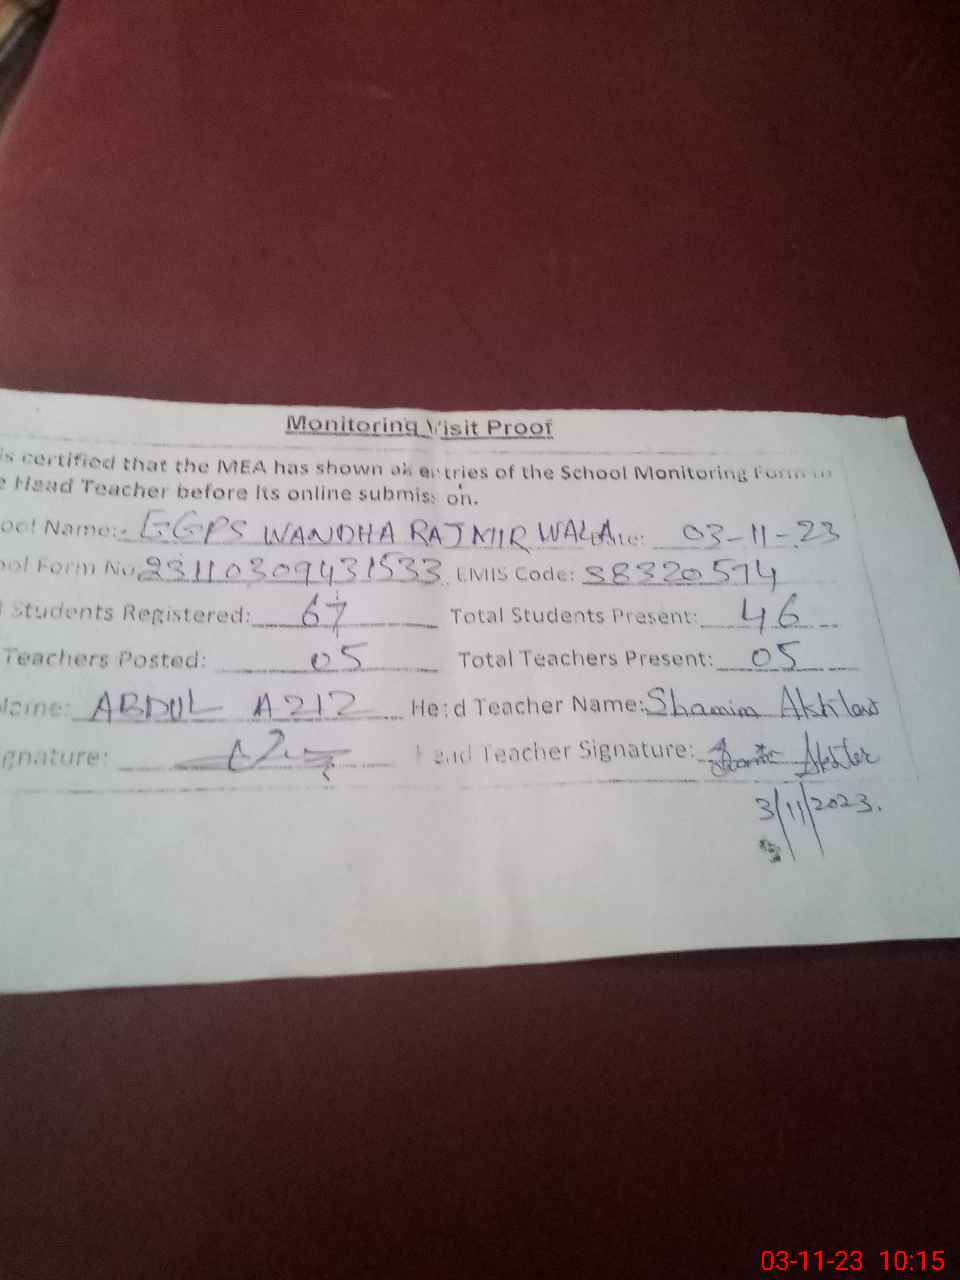 Monitoring Visit Proof
is certified that the MEA has shown all entries of the School Monitoring Form to
e Head Teacher before its online submission.
ool Name: GGPS WANDHA RAJMIR WALA Date: 03-11-23
ool Form No. 23110309431533 EMIS Code: 38320574
l Students Registered: 67 Total Students Present: 46
Teachers Posted: 05 Total Teachers Present: 05
Name: ABDUL AZIZ Head Teacher Name: Shamim Akhtar
gnature: Head Teacher Signature: Akhter
3/11/2023.
03-11-23 10:15